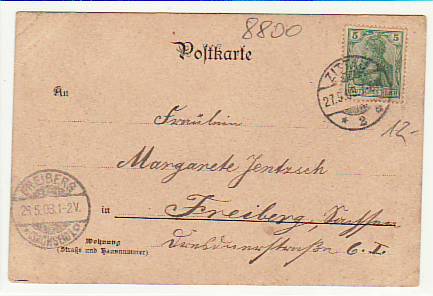 8800
Postkarte
5 5
ZITTAU
27.5.03
* 2 a
An
Fräulein
12-
Margarete Jentzsch
FREIBERG
29.5.03.1-2V.
(SACHSEN)
in Freiberg, Sachsen
Wohnung
(Straße und Hausnummer)
Dresdnerstraße 6. I.